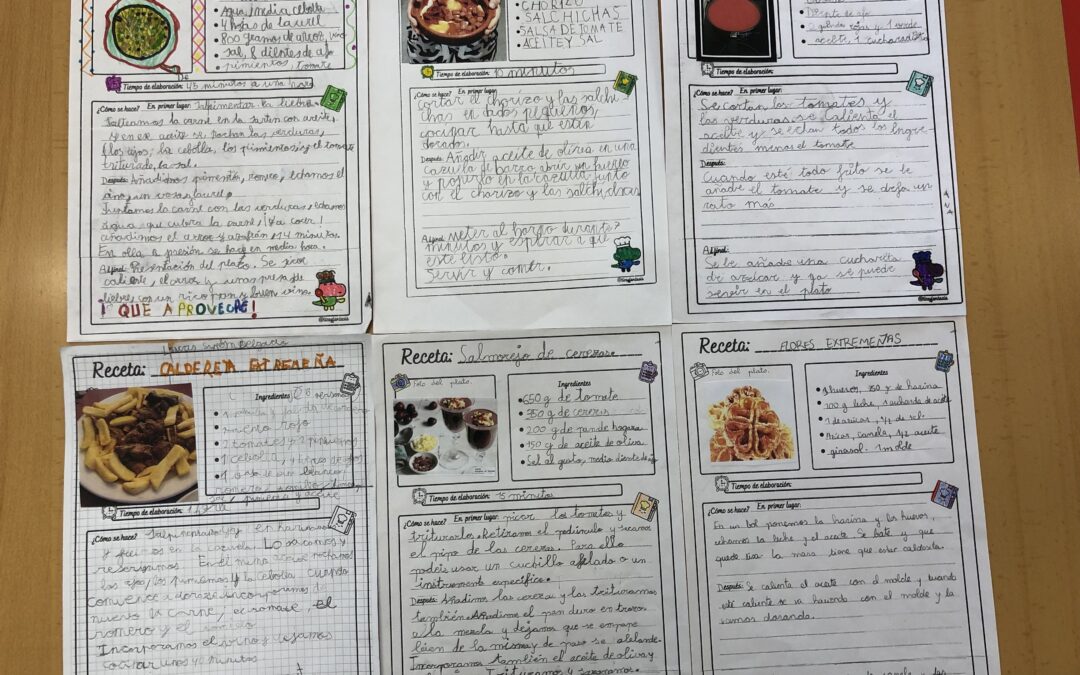 agua media cebolla
4 hojas de laurel
800 gramos de arroz, vino
sal, 8 dientes de ajo
pimientos, tomate
Tiempo de elaboración: 45 minutos a una hora
¿Cómo se hace? En primer lugar: Salpimentar la liebre.
Salteamos la carne en la sartén con aceite.
Y en ese aceite se pochan las verduras,
los ajos, la cebolla, los pimientos y el tomate
triturado, la sal.
Después: Añadimos pimentón, romero, echamos el
vino, un vaso y laurel.
Juntamos la carne con las verduras, echamos
agua que cubra la carne ¡Ya cocer!
añadimos el arroz y azafrán 14 minutos.
En olla a presión se hace en media hora.
Al final: Presentación del plato. Se sirve
caliente, el arroz y unas presas de
liebre con un rico pan y buen vino.
¡QUE APROVECHE!
@tinagfantasia
CHORIZO
SALCHICHAS
SALSA DE TOMATE
ACEITE Y SAL
Tiempo de elaboración: 10 minutos
¿Cómo se hace? En primer lugar:
cortar el chorizo y las salchi
chas en dados pequeños,
cocinar hasta que estén
dorados.
Después: Añadir aceite de oliva en una
cazuela de barro abrir un huevo
y ponerlo en la cazuela junto
con el chorizo y las salchichas
Al final: Meter al horno durante 7
minutos y esperar a que
este listo.
Servir y comer.
Diente de ajo
rojo y 1 verde
aceite, 1 cucharadita
Tiempo de elaboración:
¿Cómo se hace? En primer lugar:
Se cortan los tomates y
las verduras se calienta el
aceite y se echan todos los ingre-
dientes menos el tomate
Después:
Cuando esté todo frito se le
añade el tomate y se deja un
rato más
Al final:
Se le añade una cucharita
de azúcar y ya se puede
servir en el plato
Receta: CALDERETA EXTREMEÑA
Ingredientes
2 tomates y 2 pimientos
1 cebolla
Tiempo de elaboración:
¿Cómo se hace? En primer lugar:
y freímos en la cazuela. Lo sacamos y
reservamos. En el
los ajos, los pimientos y la cebolla cuando
comience a dorarse incorporamos de
nuevo la carne, el tomate, el
romero y el
Incorporamos el vino y dejamos
cocinar unos 40 minutos
Receta: Salmorejo de cerezas.
Foto del plato.
Ingredientes
650 g de tomate
350 g de cerezas
200 g de pan de hogaza
150 g de aceite de oliva
Sal al gusto, medio diente de ajo
Tiempo de elaboración: 15 minutos
¿Cómo se hace? En primer lugar: picar los tomates y
triturarlos. Retiramos el pedúnculo y sacamos
el pipo de las cerezas. Para ello
podéis usar un cuchillo afilado o un
instrumento específico.
Después: Añadimos las cerezas y las trituramos
también. Añadimos el pan duro en trozos
a la mezcla y dejamos que se empape
bien de la misma y de paso se ablande.
Incorporamos también el aceite de oliva y
Receta: FLORES EXTREMEÑAS
Foto del plato.
Ingredientes
4 huevos, 250 g de harina
100 g leche, 1 cucharada de aceite
girasol 1 molde
Tiempo de elaboración:
¿Cómo se hace? En primer lugar:
En un bol ponemos la harina y los huevos,
echamos la leche y el aceite. Se bate y que
quede fina la masa tiene que estar calentita.
Después: Se calienta el aceite con el molde y cuando
esté caliente se va haciendo con el molde y la
vamos dorando.